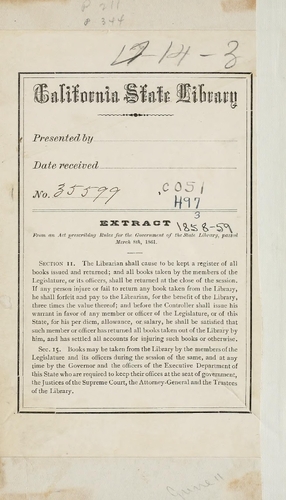 P 211
p 344
12-14-3
California State Library
Presented by
Date received
No. 35599
c051
H97
3
EXTRACT 1858-59
From an Act prescribing Rules for the Government of the State Library, passed
March 8th, 1861.
SECTION 11. The Librarian shall cause to be kept a register of all
books issued and returned; and all books taken by the members of the
Legislature, or its officers, shall be returned at the close of the session.
If any person injure or fail to return any book taken from the Library,
he shall forfeit and pay to the Librarian, for the benefit of the Library,
three times the value thereof; and before the Controller shall issue his
warrant in favor of any member or officer of the Legislature, or of this
State, for his per diem, allowance, or salary, he shall be satisfied that
such member or officer has returned all books taken out of the Library by
him, and has settled all accounts for injuring such books or otherwise.
SEC. 15. Books may be taken from the Library by the members of the
Legislature and its officers during the session of the same, and at any
time by the Governor and the officers of the Executive Department of
this State who are required to keep their offices at the seat of government,
the Justices of the Supreme Court, the Attorney-General and the Trustees
of the Library.